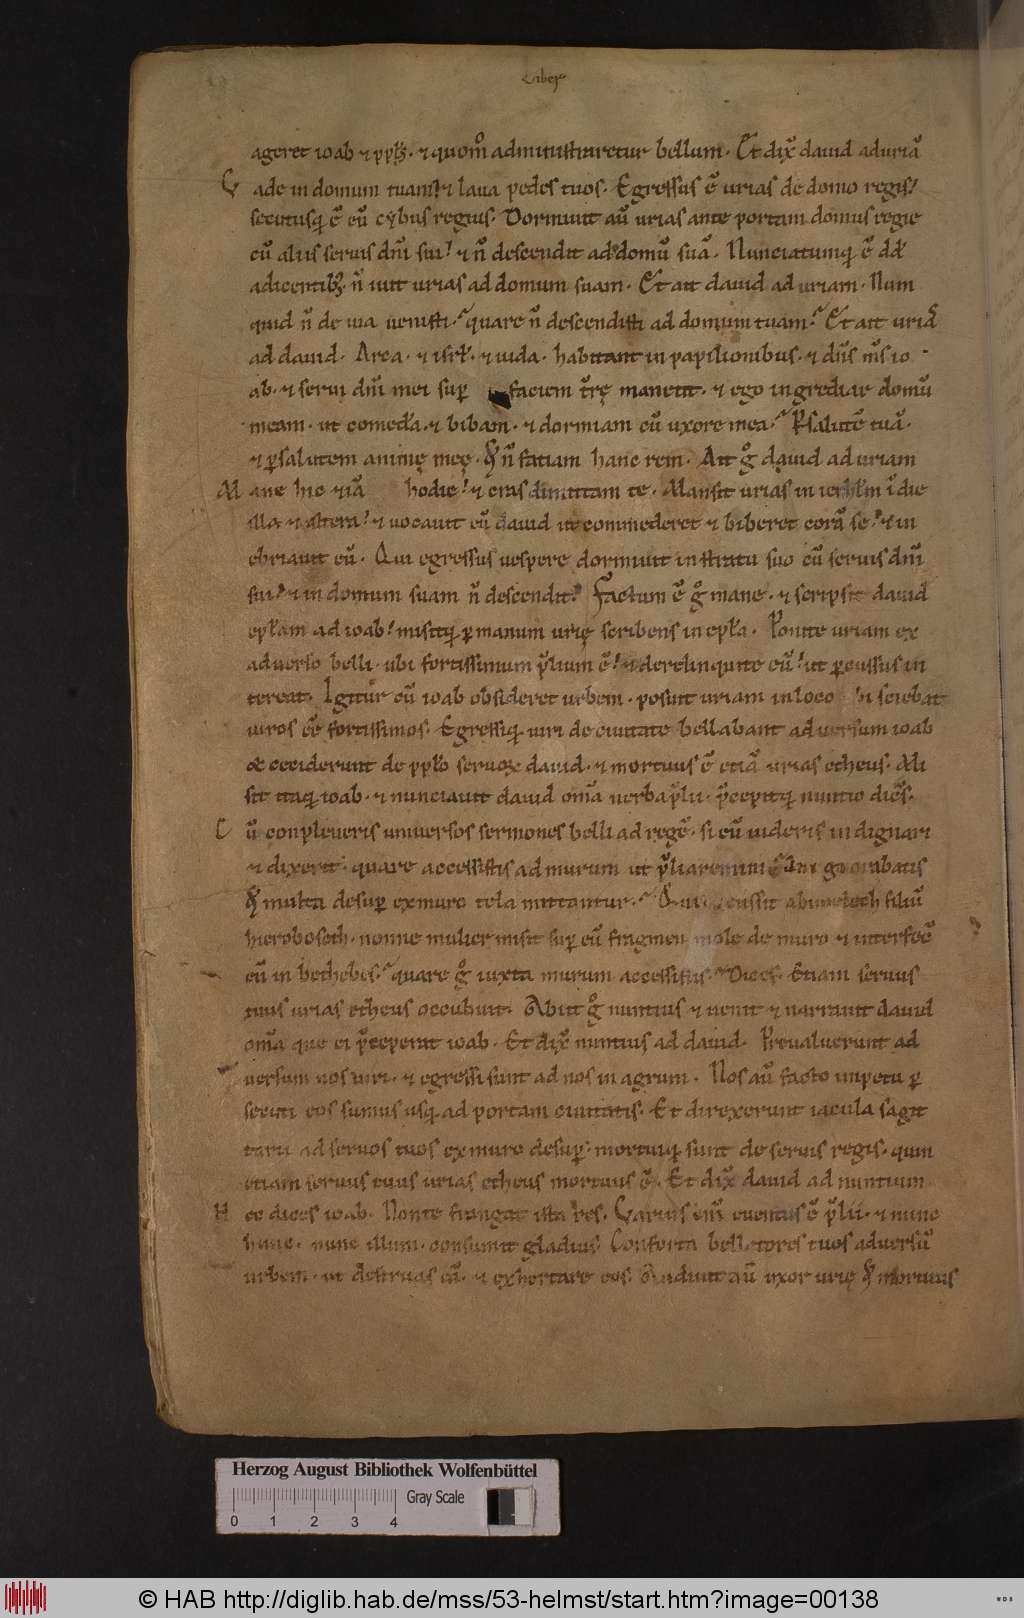 Liber
ageret ioab ⁊ ppłs · ⁊ quom̊ administraretur bellum · Et dix̄ dauid ad uriā
V ade in domum tuam ⁊ laua pedes tuos · Egressus ē urias de domo regis
secutusq; ē eū cybus regius · Dormiuit aū urias ante portam domus regie
cū aliis seruis dn̄i sui ⁊ n̄ descendit ad domū suā · Nunciatumq; ē dd̄
a dicentib; n̄ iuit urias ad domum suam · Et ait dauid ad uriam · Num
quid n̄ de uia uenisti · quare n̄ descendisti ad domum tuam · Et ait urias
ad dauid · Arca · ⁊ isrł · ⁊ iuda · habitant in papilionibus · ⁊ dn̄s m̄s io
ab · ⁊ serui dn̄i mei sup faciem t̄rę manent · ⁊ ego ingrediar domū
meam · ut comedā · ⁊ bibam · ⁊ dormiam cū uxore mea · P salutē tuā ·
⁊ p salutem animę meę · qd n̄ faciam hanc rem · Ait g̊ dauid ad uriam
M ane hic etiā hodie ⁊ cras dimittam te · Mansit urias in ierłm ī die
illa ⁊ altera ⁊ uocauit eū dauid ut commederet ⁊ biberet corā se ⁊ in
ebriauit eū · Qui egressus uespere dormiuit in stratu suo cū seruis dn̄i
sui ⁊ in domum suam n̄ descendit · Factum ē g̊ mane · ⁊ scripsit dauid
epłam ad ioab misitq; p manum urię scribens in epła · Ponite uriam ex
aduerso belli · ubi fortissimum p̄lium ē ⁊ derelinquite eū ut pcussus in
tereat · Igitur cū ioab obsideret urbem · posuit uriam in loco ubi sciebat
uiros eē fortissimos · Egressiq; uiri de ciuitate bellabant aduersum ioab
⁊ ceciderunt de ppło seruoꝝ dauid · ⁊ mortuus ē etiā urias etheus · Mi
sit itaq; ioab · ⁊ nunciauit dauid om̄a uerba p̄lii · p̄cepitq; nuntio dicēs ·
C ū conpleueris uniuersos sermones belli ad regē · si eū uideris indignari
⁊ dixerit · quare accessistis ad murum ut p̄liaremini
qd multa desup ex muro tela mittantur · Quis pcussit abimelech filiū
hieroboseth · nonne mulier misit sup eū fragmen mole de muro ⁊ interfec̄
eū in bethebes · quare g̊ iuxta murum accessistis · Dices · Etiam seruus
tuus urias etheus occubuit · Abiit g̊ nuntius ⁊ uenit ⁊ narrauit dauid
om̄a que ei p̄ceperat ioab · Et dix̄ nuntius ad dauid · Preualuerunt ad
uersum nos uiri · ⁊ egressi sunt ad nos in agrum · Nos aū facto impetu p
secuti eos sumus usq; ad portam ciuitatis · Et direxerunt iacula sagit
tarii ad seruos tuos ex muro desup · mortuiq; sunt de seruis regis · quin
etiam seruus tuus urias etheus mortuus ē · Et dix̄ dauid ad nuntium
H ec dices ioab · Non te frangat ista res · Varius eni̅ euentus ē p̄lii · ⁊ nunc
hunc · nunc illum · consumit gladius · Conforta bellatores tuos aduersū
urbem · ut destruas eā · ⁊ exhortare eos · Audiuit aū uxor urię qd mortuus
Herzog August Bibliothek Wolfenbüttel
Gray Scale
0 1 2 3 4
© HAB http://diglib.hab.de/mss/53-helmst/start.htm?image=00138